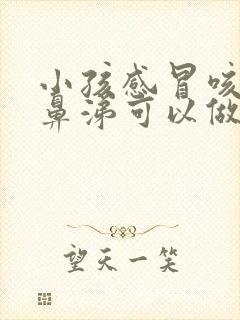 小孩感冒咳
鼻涕可以做
望天一笑